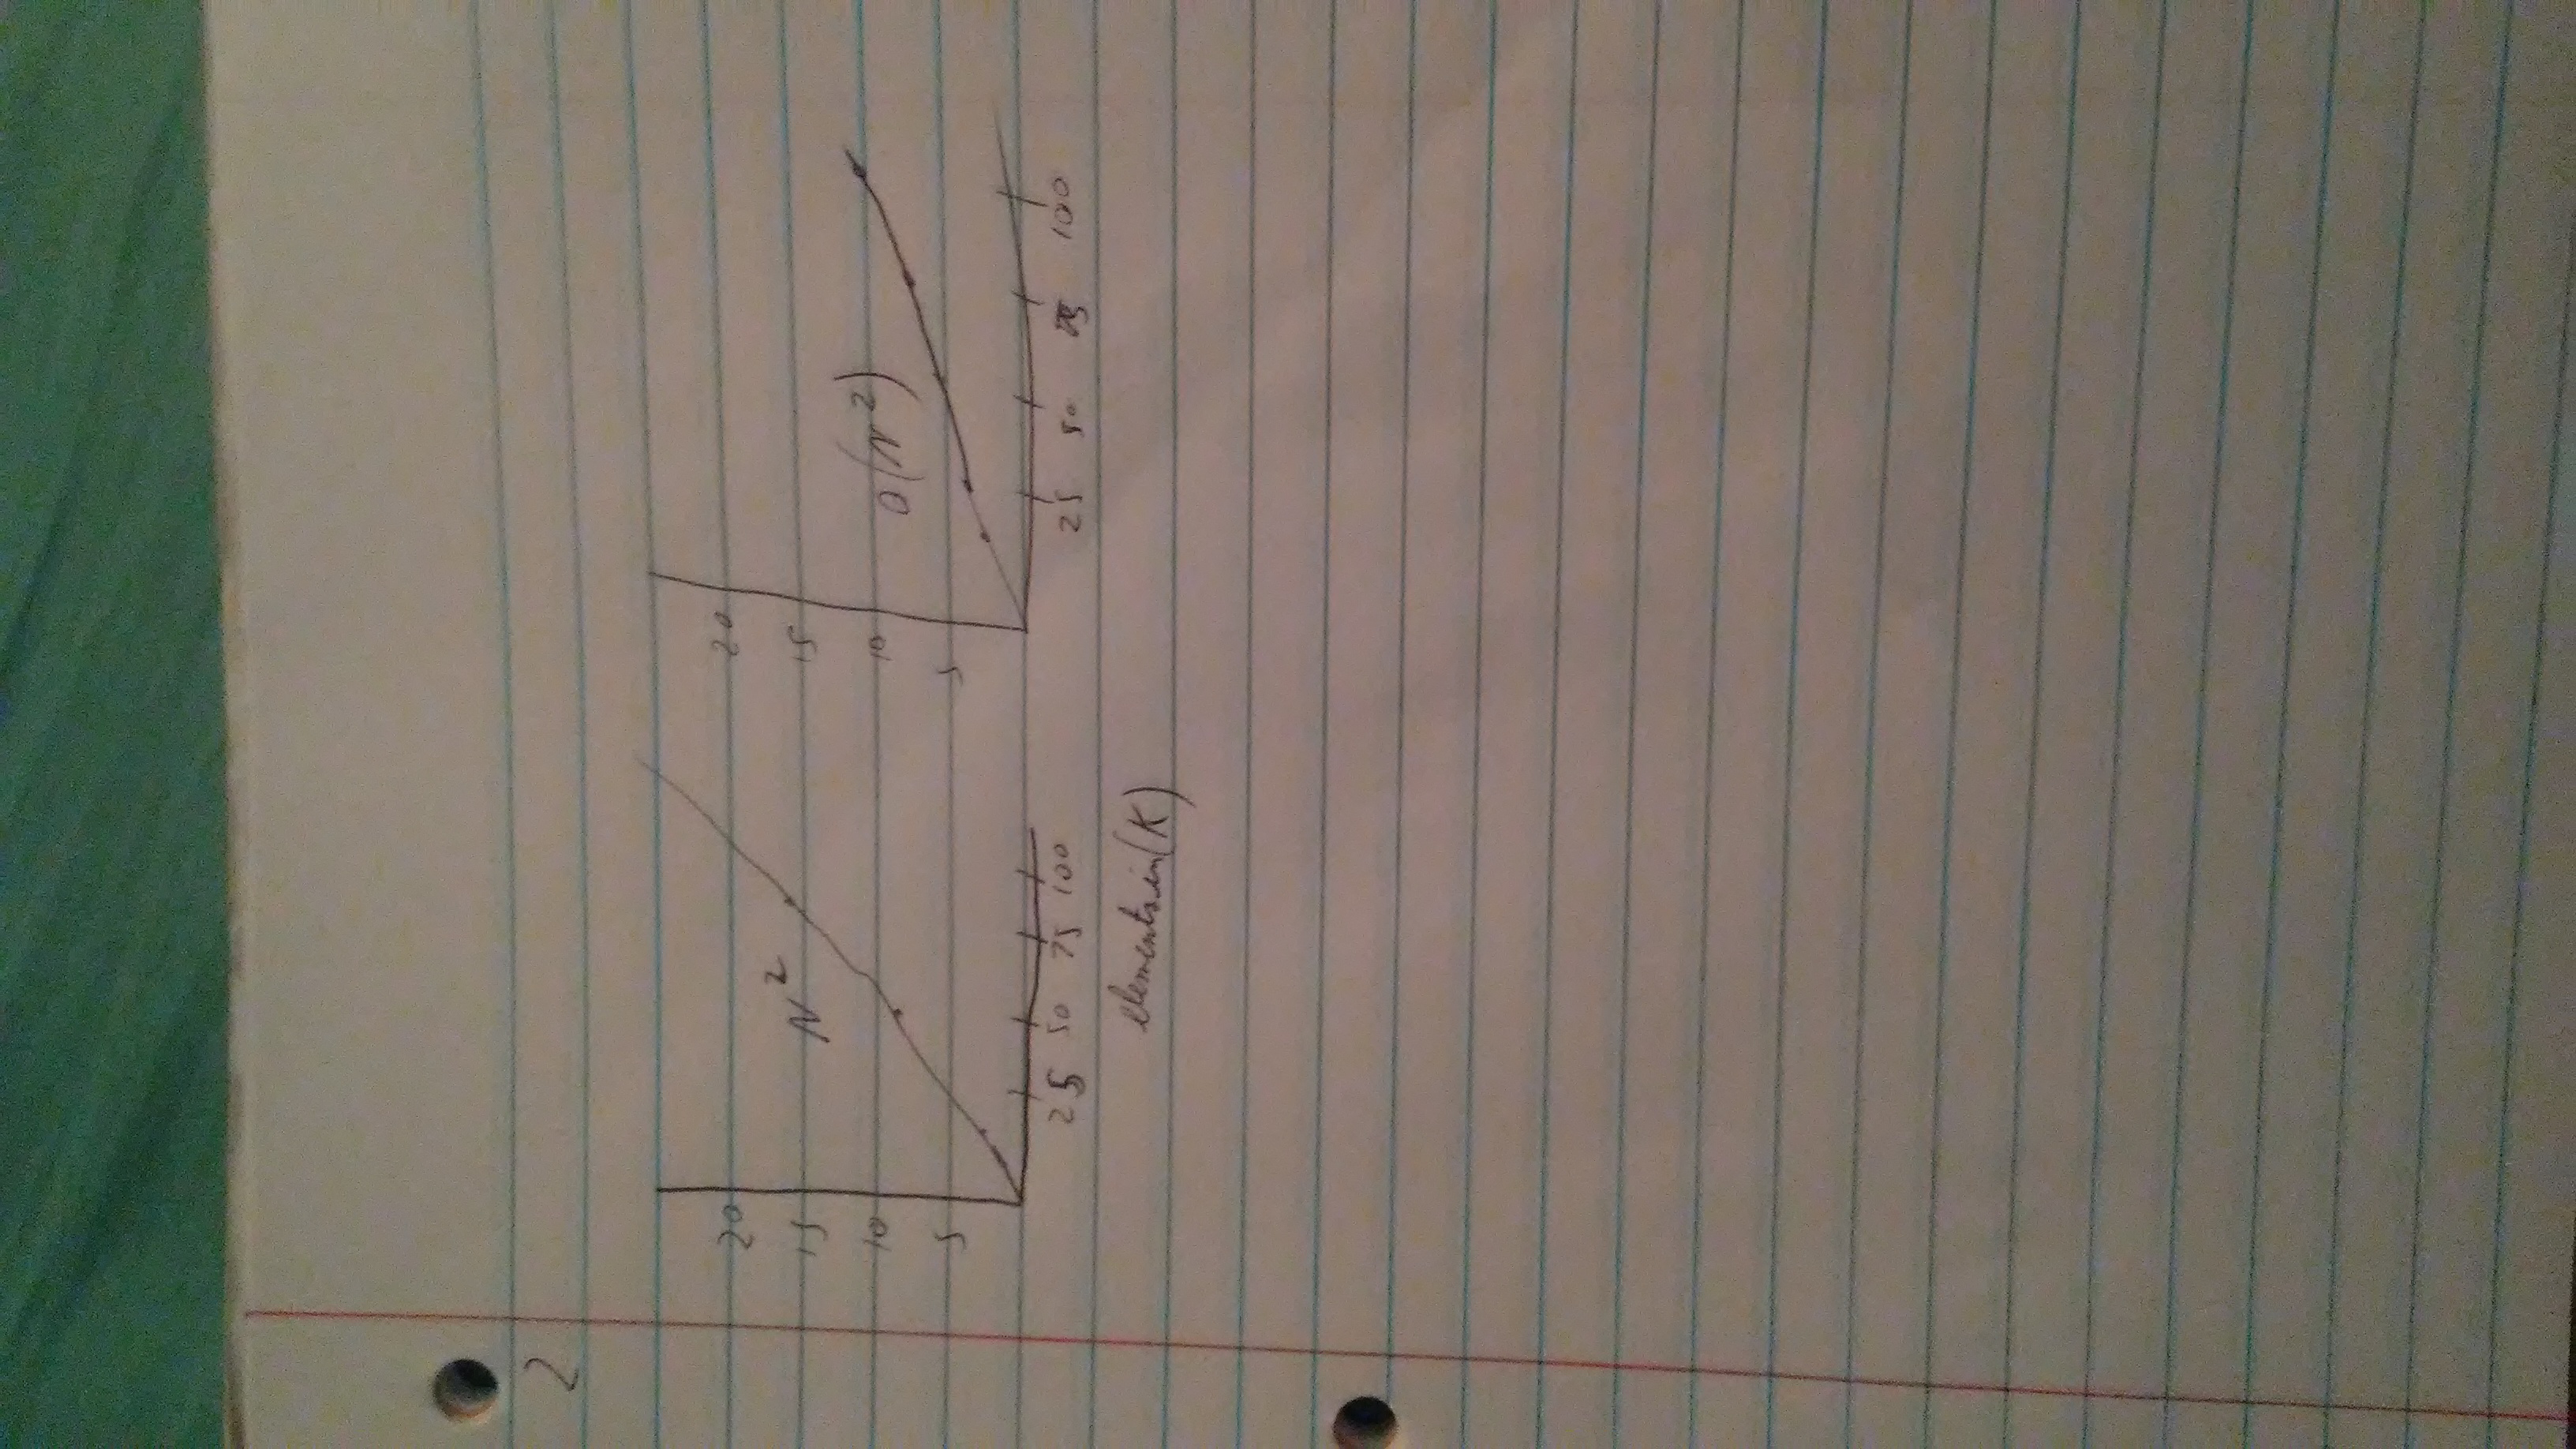 2
20
15
10
5
N²
25 50 75 100
elements in (K)
20
15
10
5
O(N²)
25 50 75 100